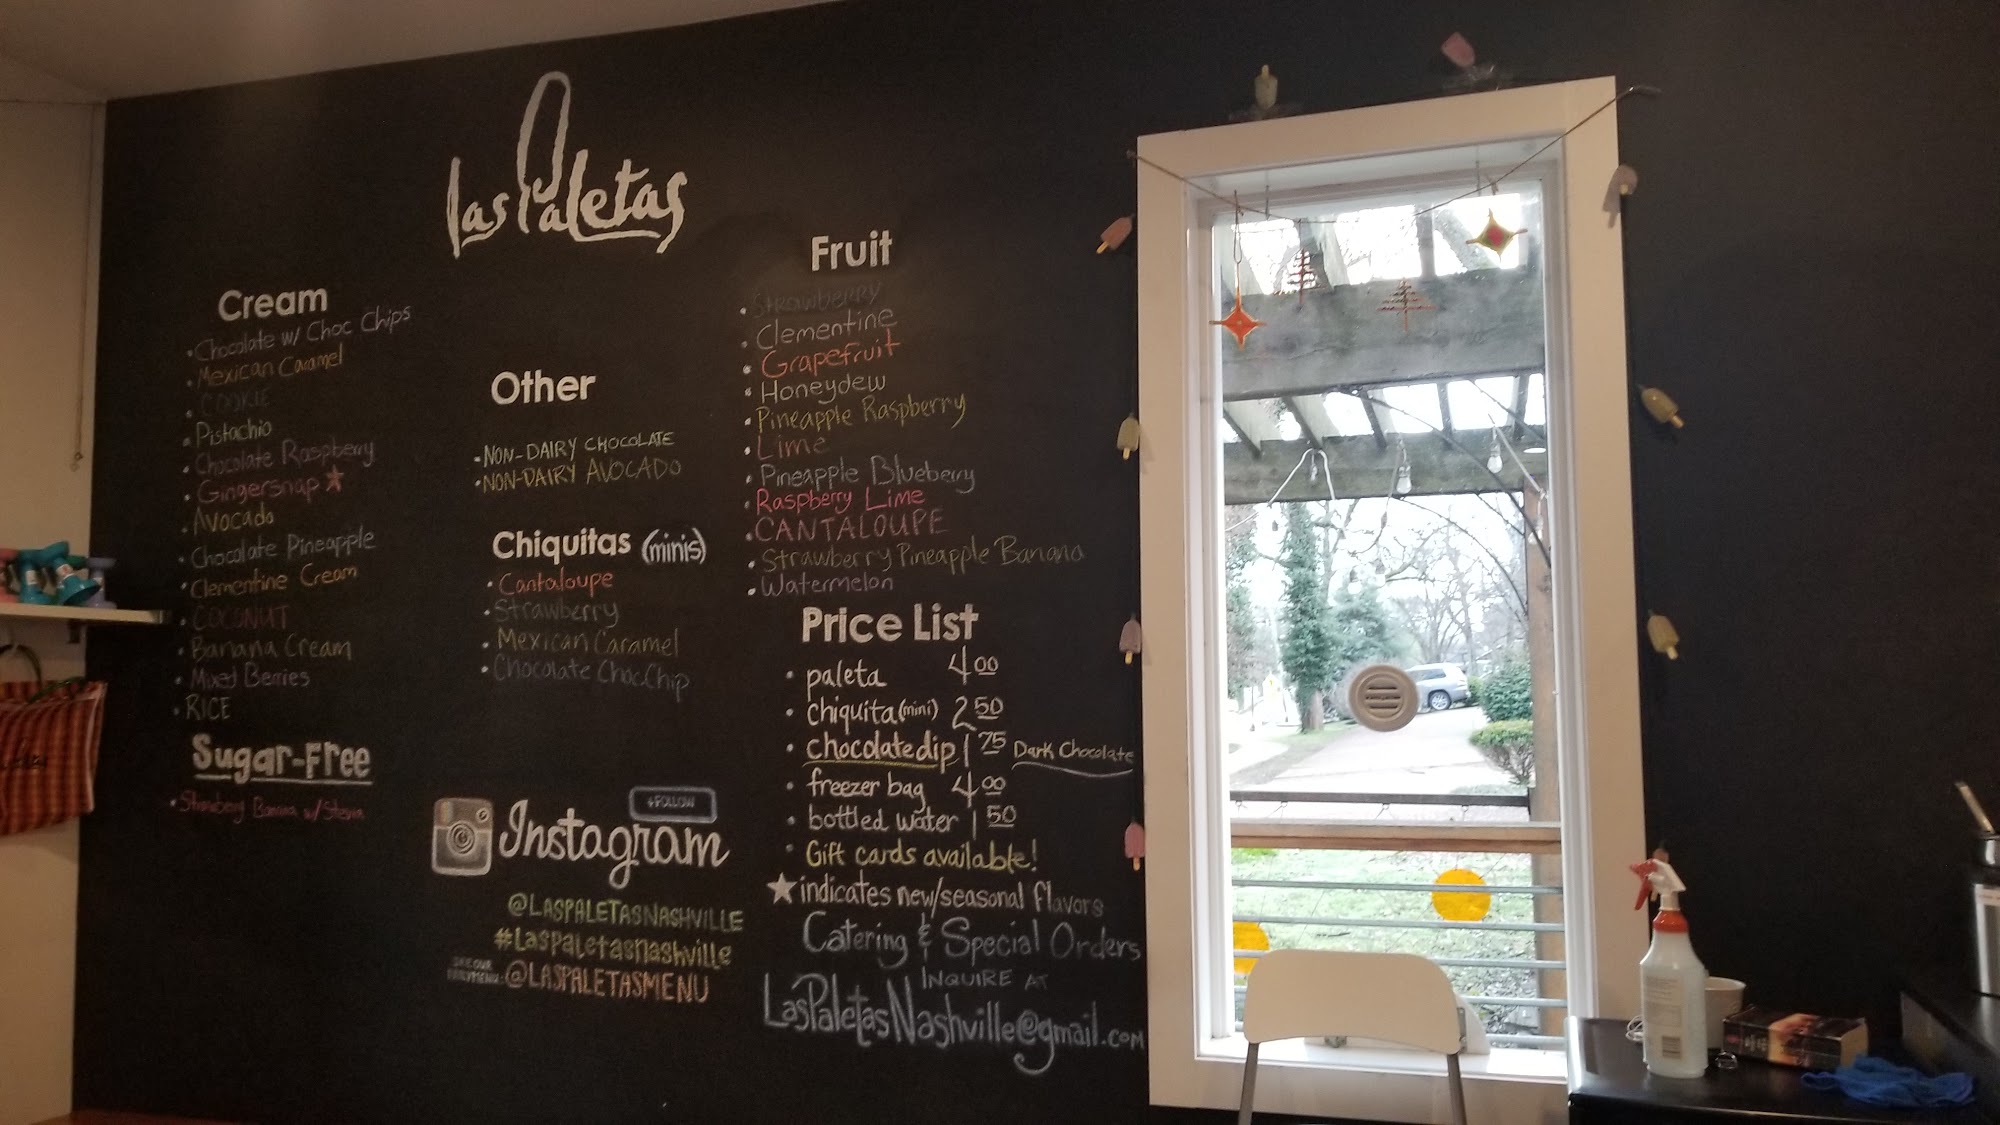 Las Paletas
Cream
Chocolate w/ Choc Chips
Mexican Caramel
COOKIE
Pistachio
Chocolate Raspberry
Gingersnap ★
Avocado
Chocolate Pineapple
Clementine Cream
COCONUT
Banana Cream
Mixed Berries
RICE
Sugar-Free
Strawberry Banana w/ Stevia
Other
NON-DAIRY CHOCOLATE
NON-DAIRY AVOCADO
Chiquitas (minis)
Cantaloupe
Strawberry
Mexican Caramel
Chocolate Choc Chip
+FOLLOW
Instagram
@LASPALETASNASHVILLE
#Laspaletasnashville
SEE OUR
DAILY MENU
@LASPALETASMENU
Fruit
STRAWBERRY
Clementine
Grapefruit
Honeydew
Pineapple Raspberry
Lime
Pineapple Blueberry
Raspberry Lime
CANTALOUPE
Strawberry Pineapple Banana
Watermelon
Price List
paleta 4.00
chiquita (mini) 2 50
chocolate dip 1 75 Dark Chocolate
freezer bag 4.00
bottled water 1 50
Gift cards available!
★ indicates new/seasonal flavors
Catering & Special Orders
INQUIRE AT
LasPaletasNashville@gmail.com